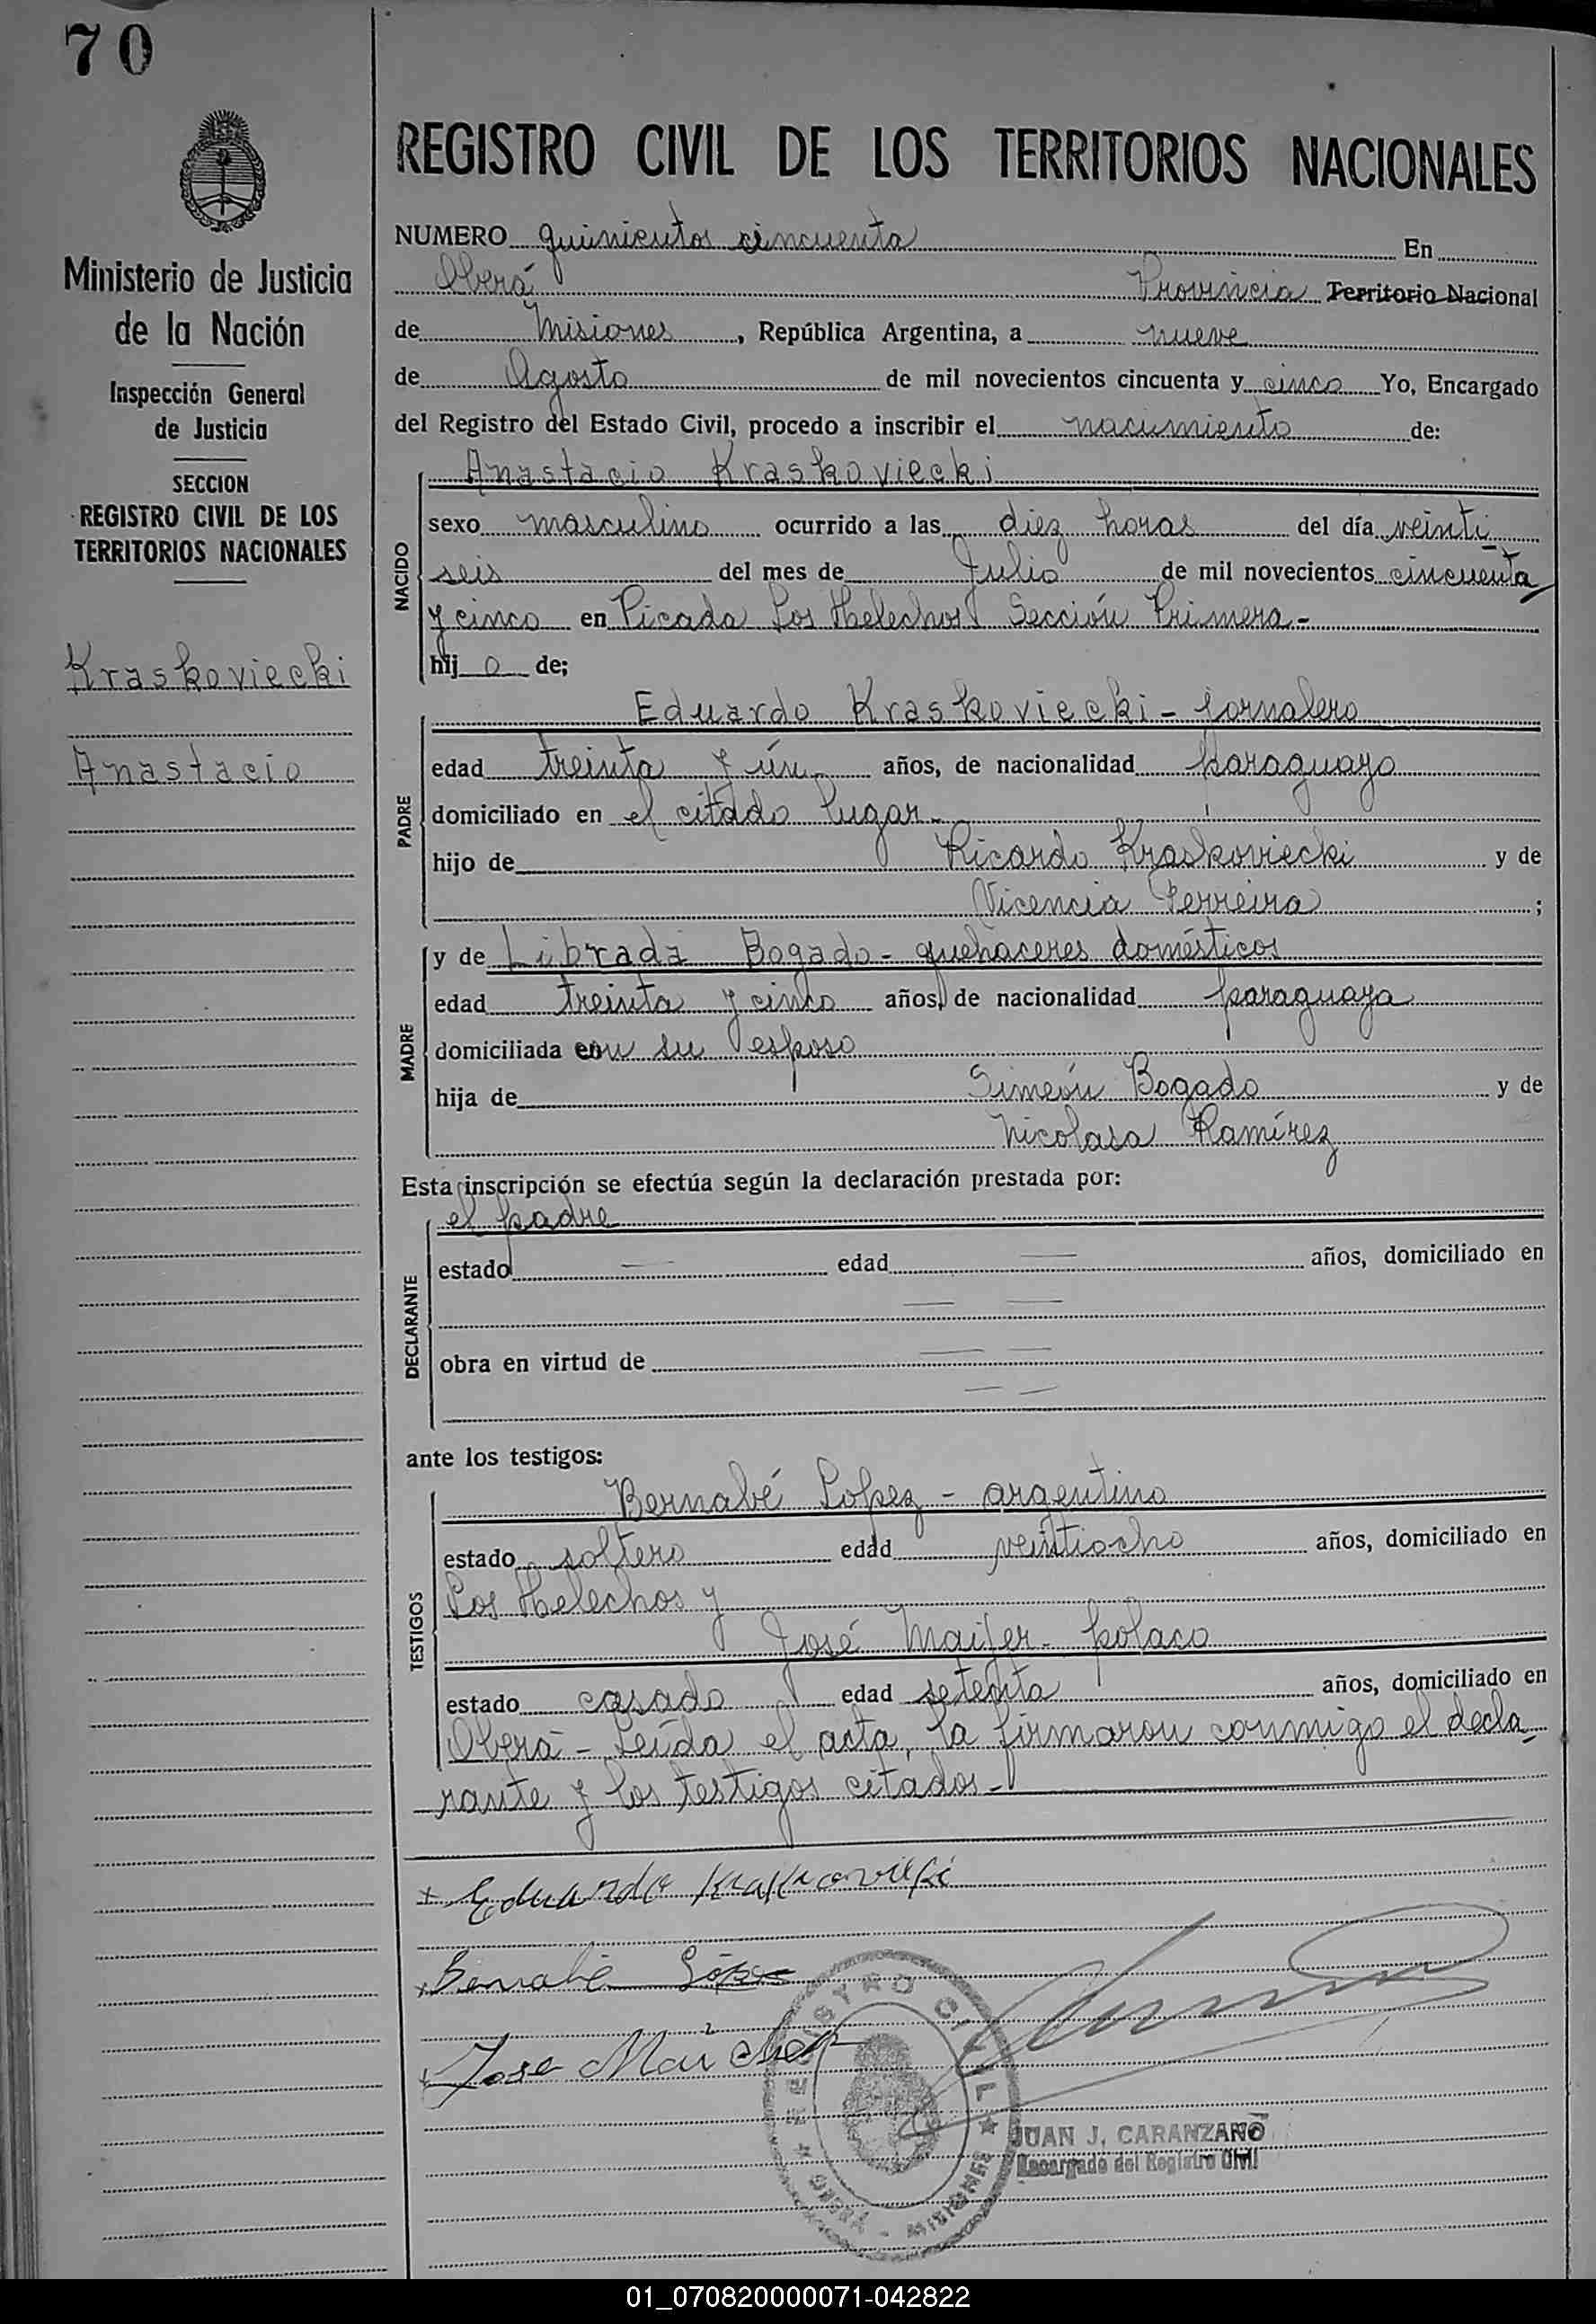 70
REGISTRO CIVIL DE LOS TERRITORIOS NACIONALES
Ministerio de Justicia
de la Nación
Inspección General
de Justicia
SECCION
REGISTRO CIVIL DE LOS
TERRITORIOS NACIONALES
Kraskoviecki
Anastacio
NUMERO quinientos cincuenta En
Oberá Provincia Territorio Nacional
de Misiones, República Argentina, a nueve
de Agosto de mil novecientos cincuenta y cinco Yo, Encargado
del Registro del Estado Civil, procedo a inscribir el nacimiento de:
NACIDO
Anastacio Kraskoviecki
sexo masculino ocurrido a las diez horas del día veinti
seis del mes de Julio de mil novecientos cincuenta
y cinco en Picada Los Helechos Sección Primera.-
hij o de;
PADRE
Eduardo Kraskoviecki - jornalero
edad treinta y ún años, de nacionalidad paraguayo
domiciliado en el citado lugar.
hijo de Ricardo Kraskoviecki y de
Vicencia Ferreira ;
MADRE
y de Librada Bogado - quehaceres domésticos
edad treinta y cinco años, de nacionalidad paraguaya
domiciliada con su esposo
hija de Simeón Bogado y de
Nicolasa Ramírez
Esta inscripción se efectúa según la declaración prestada por:
DECLARANTE
el padre
estado — edad — años, domiciliado en
— —
obra en virtud de — —
— —
ante los testigos:
TESTIGOS
Bernabé Lopez - argentino
estado soltero edad veintiocho años, domiciliado en
Los Helechos y
José Maifer - polaco
estado casado edad setenta años, domiciliado en
Oberá - Leída el acta, la firmaron conmigo el decla
rante y los testigos citados -
+ Eduardo
Bernabé López
Jose
REGISTRO CIVIL
OBERA - MISIONES
JUAN J. CARANZANO
Encargado del Registro Civil
01_070820000071-042822